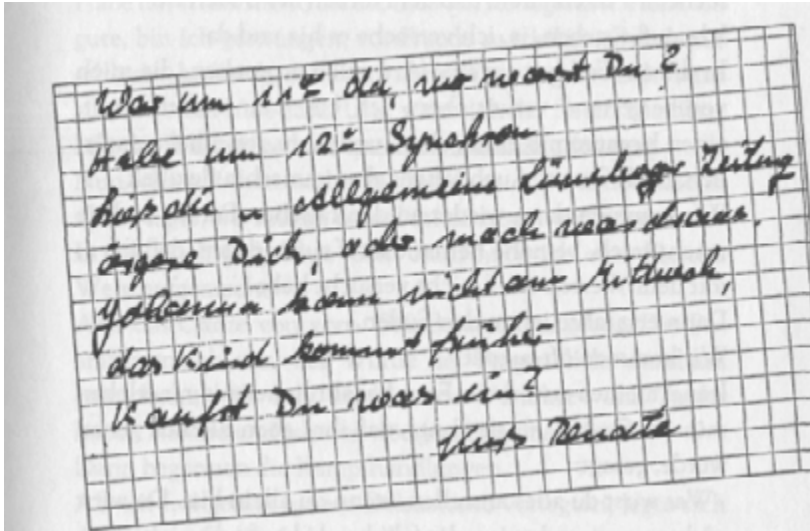 War um 11°° da, wo warst Du?
Habe um 12°° Synchron
hass die „Allgemeine Lüneburger Zeitung
ärgere Dich, oder mach was draus.
kann nicht am Mittwoch,
das Kind kommt früher
Kaufst Du was ein?
Kuß Renate